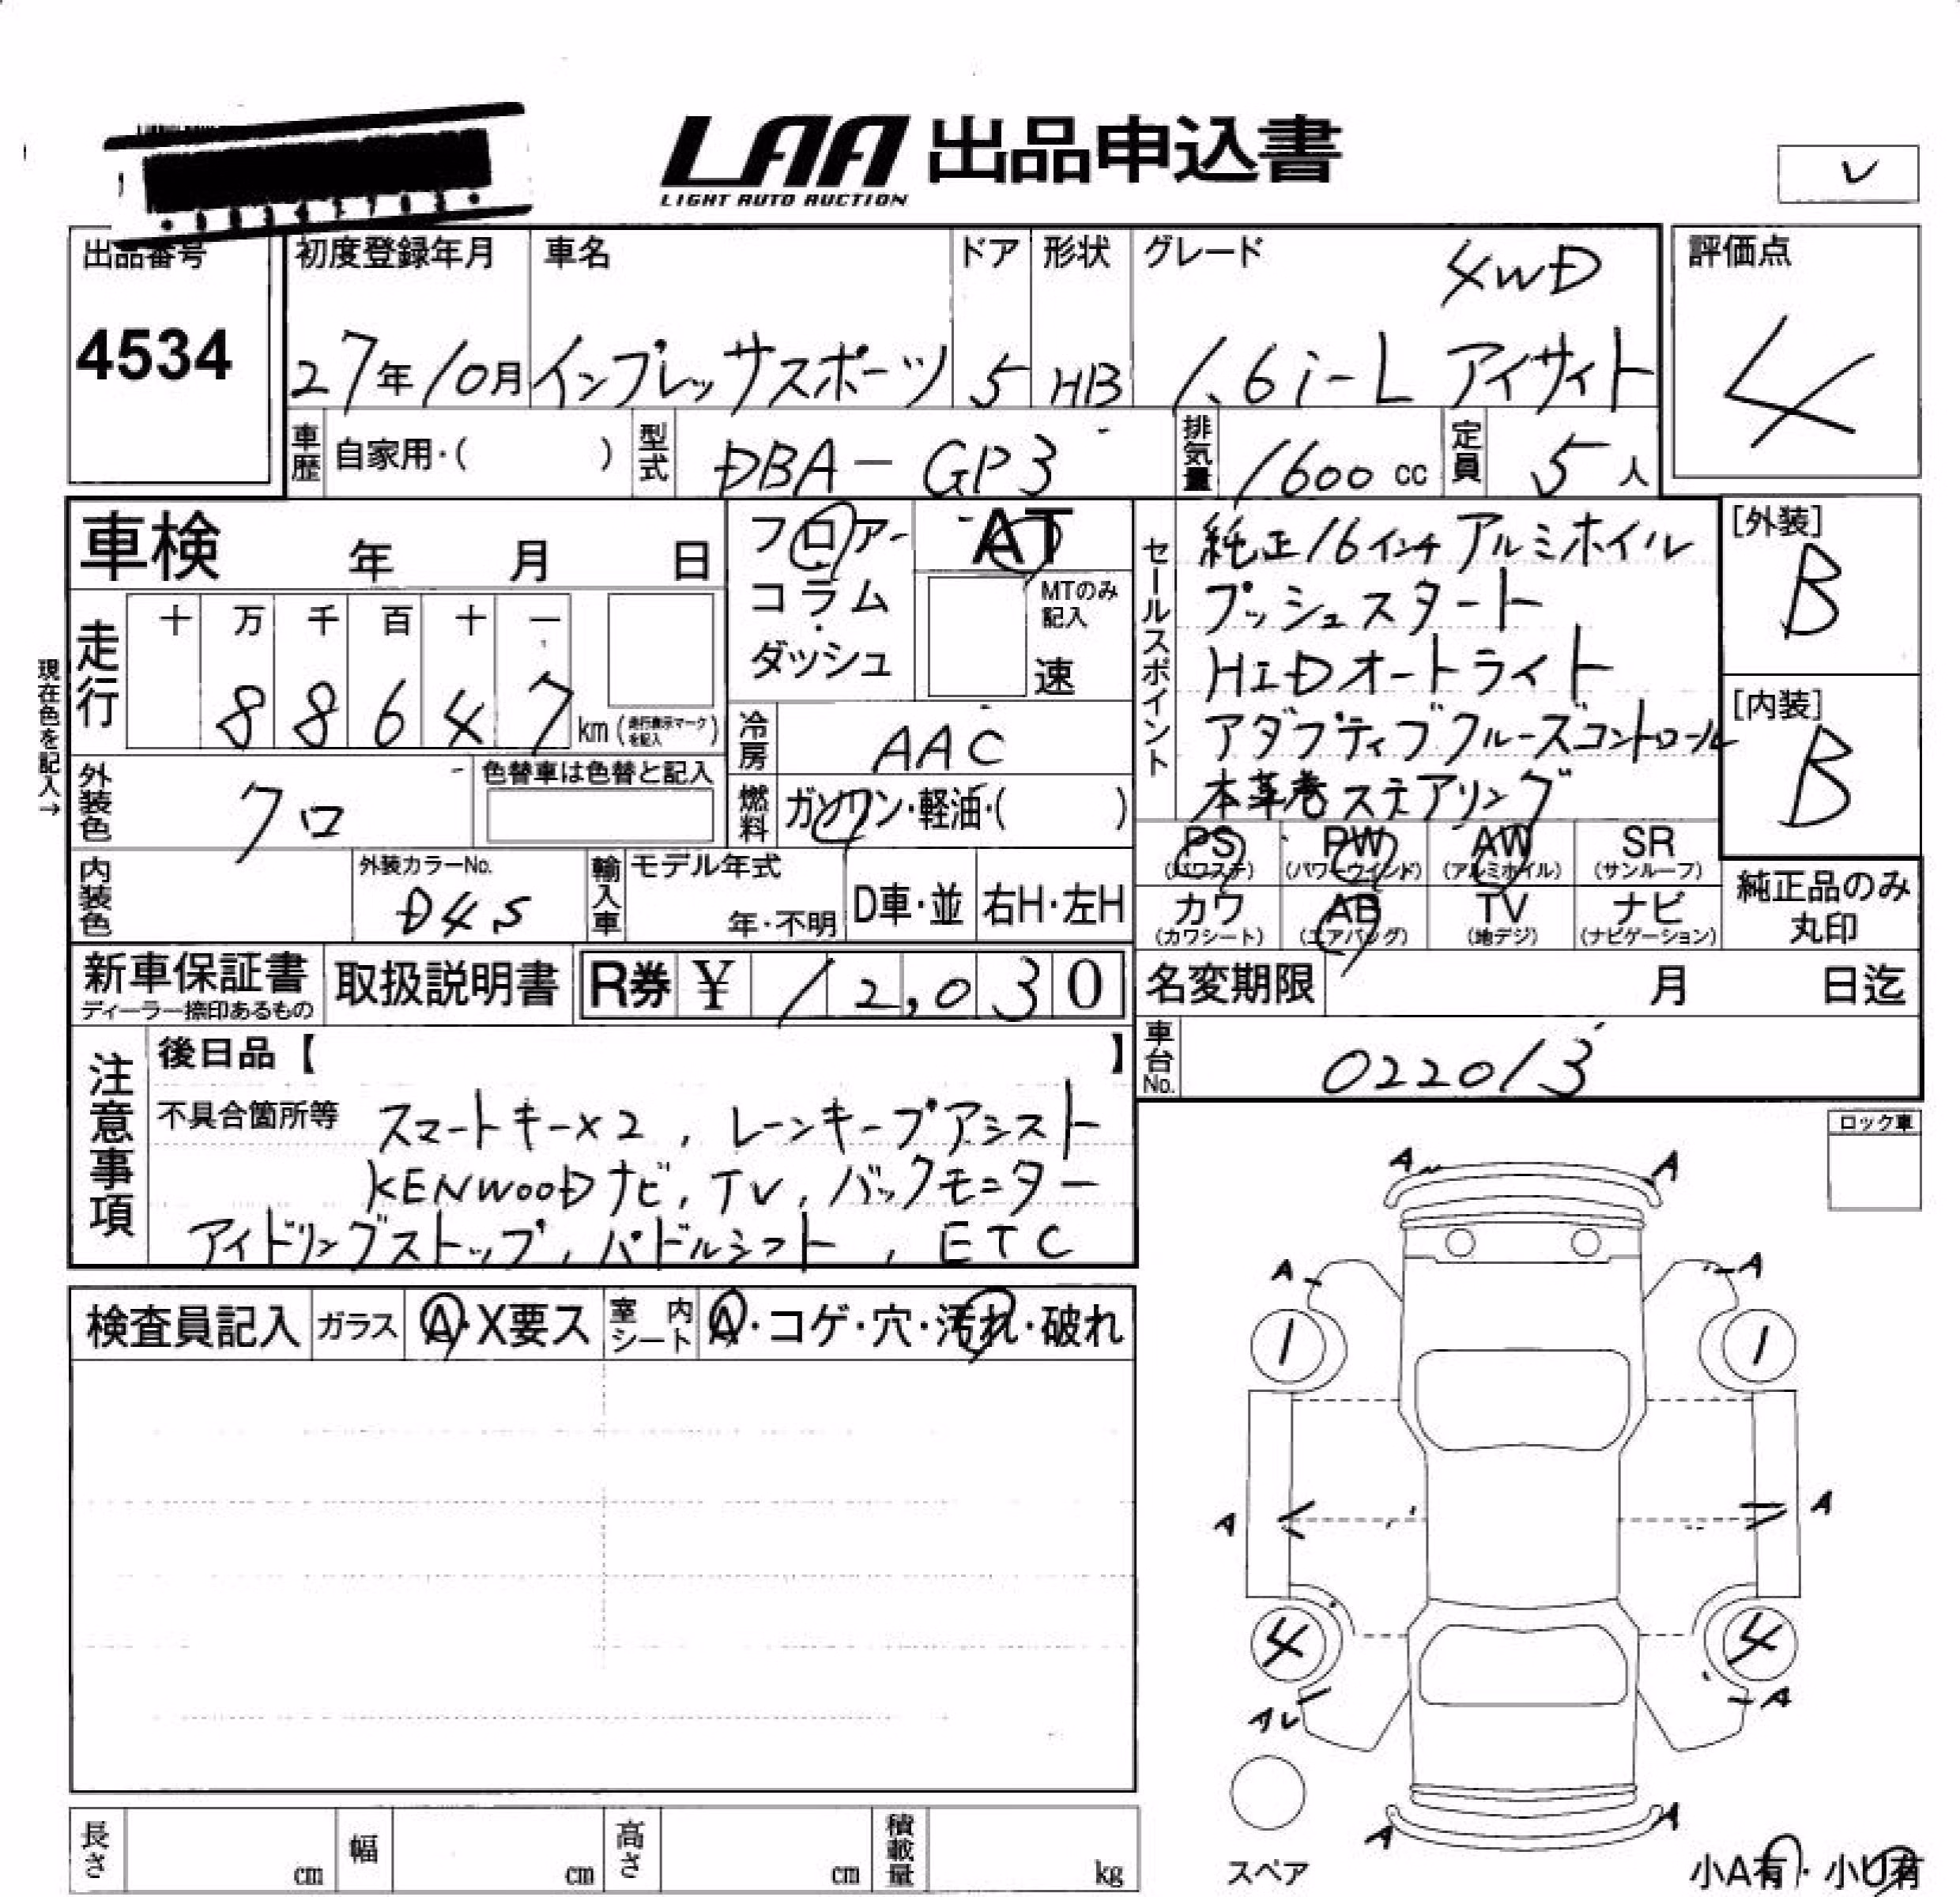 LAA 出品申込書
LIGHT AUTO AUCTION
レ
出品番号 初度登録年月 車名 ドア 形状 グレード 4WD 評価点
4534 27年10月 インプレッサスポーツ 5 HB 1.6i-L アイサイト 4
車歴 自家用・( ) 型式 DBA-GP3 排気量 1600cc 定員 5人
車検 年 月 日
フロアー AT
コラム・ MTのみ記入
ダッシュ 速
セールスポイント
純正16インチアルミホイル
プッシュスタート
HIDオートライト
アダプティブクルーズコントロール
本革巻ステアリング
[外装]
B
[内装]
B
現在色を記入→
走行 十 万 千 百 十 一
8 8 6 4 7 km (走行表示マークを記入)
冷房 AAC
外装色 クロ 色替車は色替と記入
燃料 ガソリン・軽油・( )
PS PW AW SR
(パワステ) (パワーウインド) (アルミホイル) (サンルーフ)
カワ AB TV ナビ
(カワシート) (エアバッグ) (地デジ) (ナビゲーション)
純正品のみ
丸印
内装色 外装カラーNo. D4S
輸入車 モデル年式 年・不明 D車・並 右H・左H
新車保証書 取扱説明書 R券 ¥ 12,030
ディーラー捺印あるもの
名変期限 月 日迄
車台No. 022013
注意事項
後日品【 】
不具合箇所等 スマートキー×2, レーンキープアシスト
KENWOODナビ, TV, バックモニター
アイドリングストップ, パドルシフト, ETC
ロック車
検査員記入 ガラス A・X要ス 室内シート A・コゲ・穴・汚れ・破れ
A A
A A
1 1
A A
4 4
A
A A
スペア
小A有・小U有
長さ cm 幅 cm 高さ cm 積載量 kg